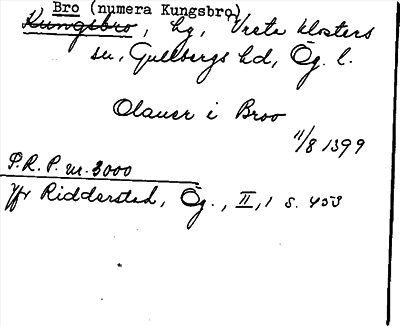 Bro (numera Kungsbro)
Kungsbro, hg, Vreta klosters
sn, Gullbergs hd, Ög. l.
Olauer i Broo
11/8 1399
S.R.P. nr. 3000
Jfr Ridderstad, Ög., II, 1 s. 453